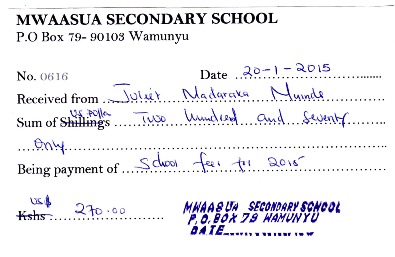 MWAASUA SECONDARY SCHOOL
P.O Box 79- 90103 Wamunyu
No. 0616 Date 20-1-2015
Received from Juliet Madaraka Muinde
US Dollar
Sum of Shillings Two hundred and seventy
only
Being payment of School fees for 2015
US$
Kshs 270.00
MWAASUA SECONDARY SCHOOL
P.O. BOX 79 WAMUNYU
DATE